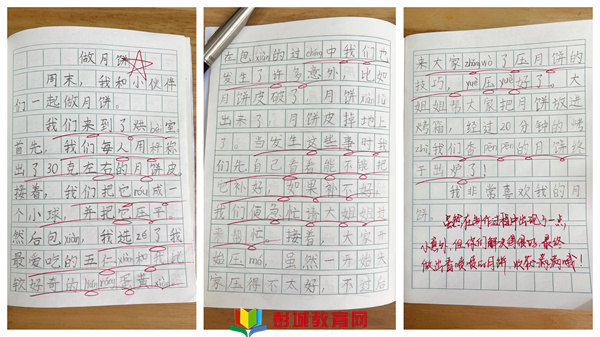 做月饼
周末，我和小伙伴
们一起做月饼。
我们来到了烘bèi室
首先，我们每人用秤称
出了30克左右的月饼皮
接着，我们把它róu成一
个小球，并把它压平。
然后包xiàn，我选了我
最爱吃的五仁xiàn和我比
较好奇的蛋黄
在包xiàn的过chéng中我们也
发生了许多意外，比如
月饼皮破了，月饼xiàn lù
出来了，月饼皮掉地上
了。当发生这些事时我
们先自己看看能不能把
它补好，如果补不好，
我们便急忙请大姐姐过
来帮忙。接着，大家开
始压mó，虽然一开始大
家压得不太好，不过后
来大家zhǎng wò了压月饼的
技巧，yuè压yuè好了。大
姐姐帮大家把月饼放进
烤箱，经过20分钟的
zhì我们香pēn pēn的月饼终
于出炉了！
我非常喜欢我的月
饼。
虽然在制作过程中出现了一点
小意外，但你们解决得很好，最终
做出香喷喷的月饼，收获
彭城教育网